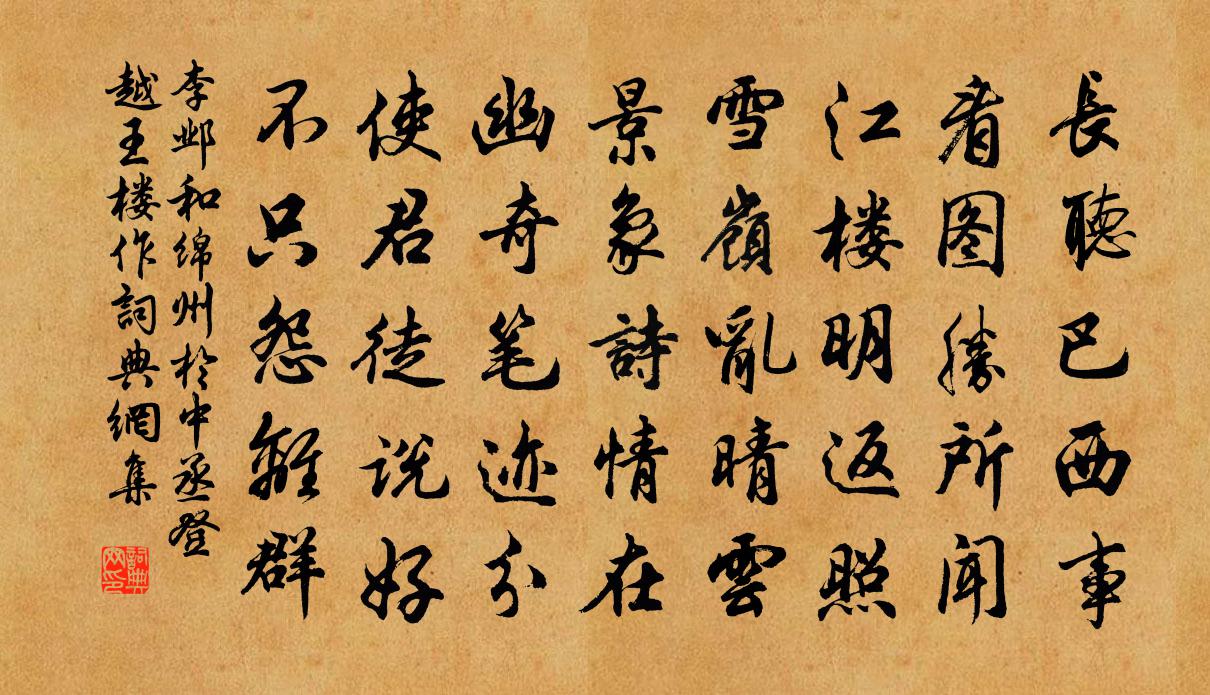 長聽巴西事
看图勝所聞
江楼明返照
雪嶺亂晴雲
景象詩情在
幽奇笔迹分
使君徒说好
不只怨離群
李邺和绵州於中丞登
越王楼作詞典網集
詞典
网印